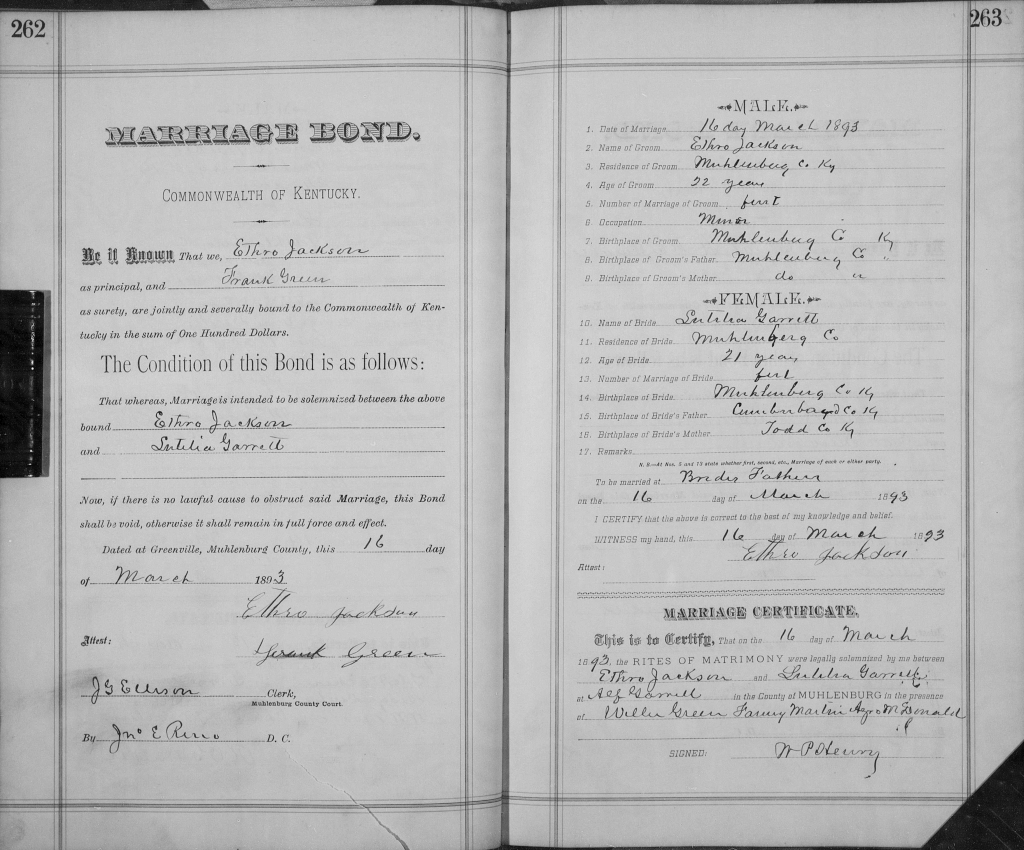 262
MARRIAGE BOND.
COMMONWEALTH OF KENTUCKY.
Be it Known That we, Ethro Jackson
Frank Green
as principal, and
as surety, are jointly and severally bound to the Commonwealth of Ken-
tucky in the sum of One Hundred Dollars.
The Condition of this Bond is as follows:
That whereas, Marriage is intended to be solemnized between the above
bound Ethro Jackson
and Lutilia Garrett
Now, if there is no lawful cause to obstruct said Marriage, this Bond
shall be void, otherwise it shall remain in full force and effect.
Dated at Greenville, Muhlenburg County, this 16 day
of March 1893
Ethro Jackson
Attest:
Frank Green
J G Ellison Clerk,
Muhlenburg County Court.
By Jno E Reno D. C.
263
MALE.
1. Date of Marriage 16 day March 1893
2. Name of Groom Ethro Jackson
3. Residence of Groom Muhlenburg Co Ky
4. Age of Groom 22 years
5. Number of Marriage of Groom first
6. Occupation Miner
7. Birthplace of Groom Muhlenburg Co Ky
8. Birthplace of Groom's Father Muhlenburg Co "
9. Birthplace of Groom's Mother do "
FEMALE.
10. Name of Bride Lutilia Garrett
11. Residence of Bride Muhlenberg Co
12. Age of Bride 21 years
13. Number of Marriage of Bride first
14. Birthplace of Bride Muhlenburg Co Ky
15. Birthplace of Bride's Father Cumberland Co Ky
16. Birthplace of Bride's Mother Todd Co Ky
17. Remarks
N. B.—At Nos. 5 and 13 state whether first, second, etc., Marriage of such or either party.
To be married at Brides Fathers
on the 16 day of March 1893
I CERTIFY that the above is correct to the best of my knowledge and belief.
WITNESS my hand, this 16 day of March 1893
Ethro Jackson
Attest:
MARRIAGE CERTIFICATE.
This is to Certify, That on the 16 day of March
1893, the RITES OF MATRIMONY were legally solemnized by me between
Ethro Jackson and Lutilia Garrett
at Alf Garrett in the County of MUHLENBURG in the presence
of Willie Green Fanny Martin McDonald
SIGNED: W P Henry